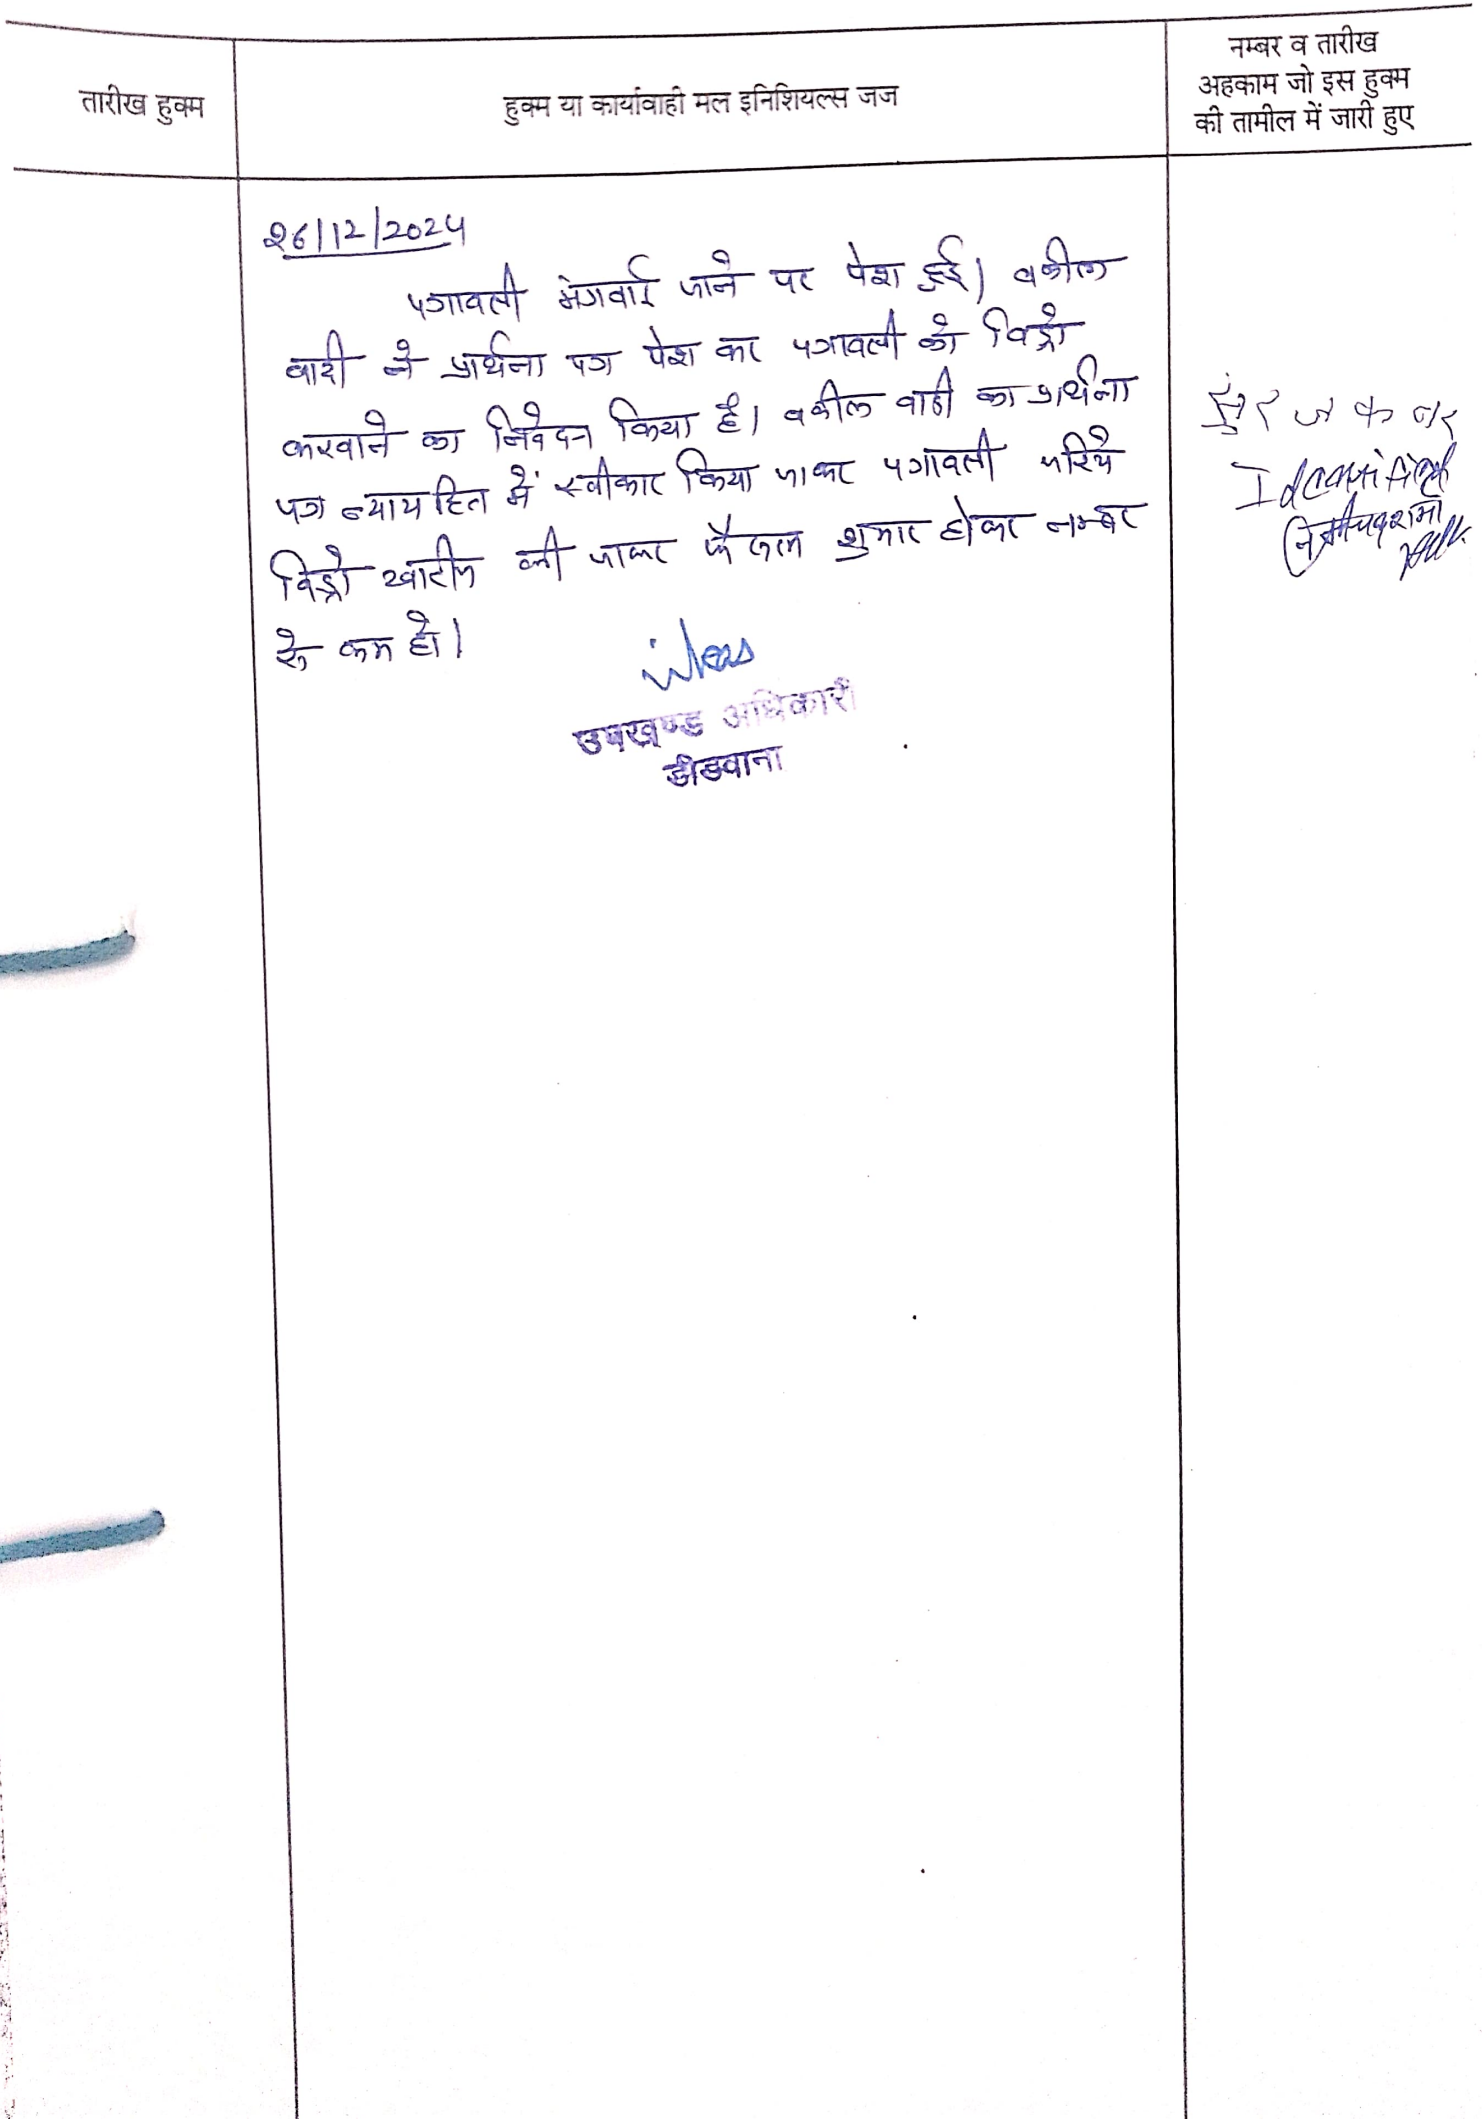 तारीख हुक्म
हुक्म या कार्यावाही मल इनिशियल्स जज
नम्बर व तारीख
अहकाम जो इस हुक्म
की तामील में जारी हुए
26/12/2024
पत्रावली मंगवाई जाने पर पेश हुई। वकील
वादी ने प्रार्थना पत्र पेश कर पत्रावली को विड्रो
करवाने का निवेदन किया है। वकील वादी का प्रार्थना
पत्र न्यायहित में स्वीकार किया जाकर पत्रावली जरिये
विड्रो खारीज की जाकर फैसल शुमार होकर नम्बर
से कम हो।
उपखण्ड अधिकारी
डीडवाना
सुरजकवर
Identified